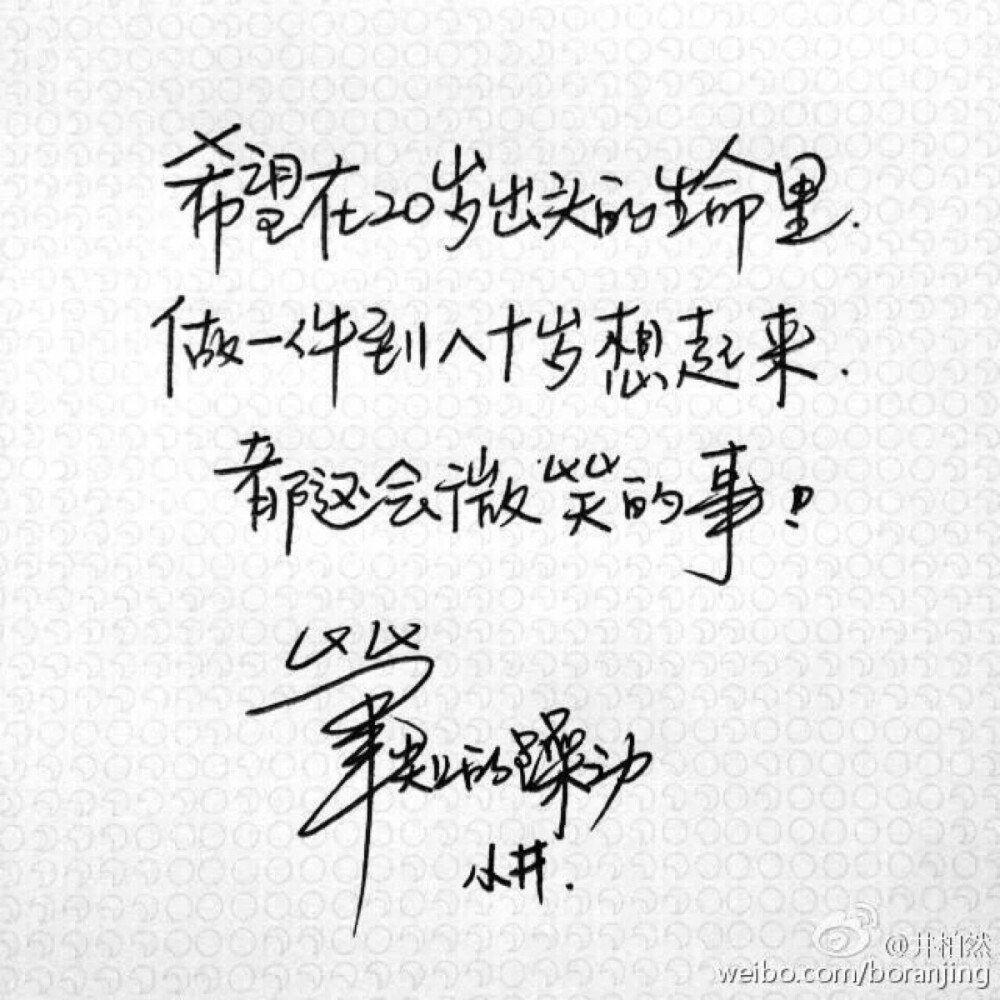 希望在20岁出头的生命里.
做一件到八十岁想起来.
都还会微笑的事!
笔类的躁动
小井.
@井柏然
weibo.com/boranjing